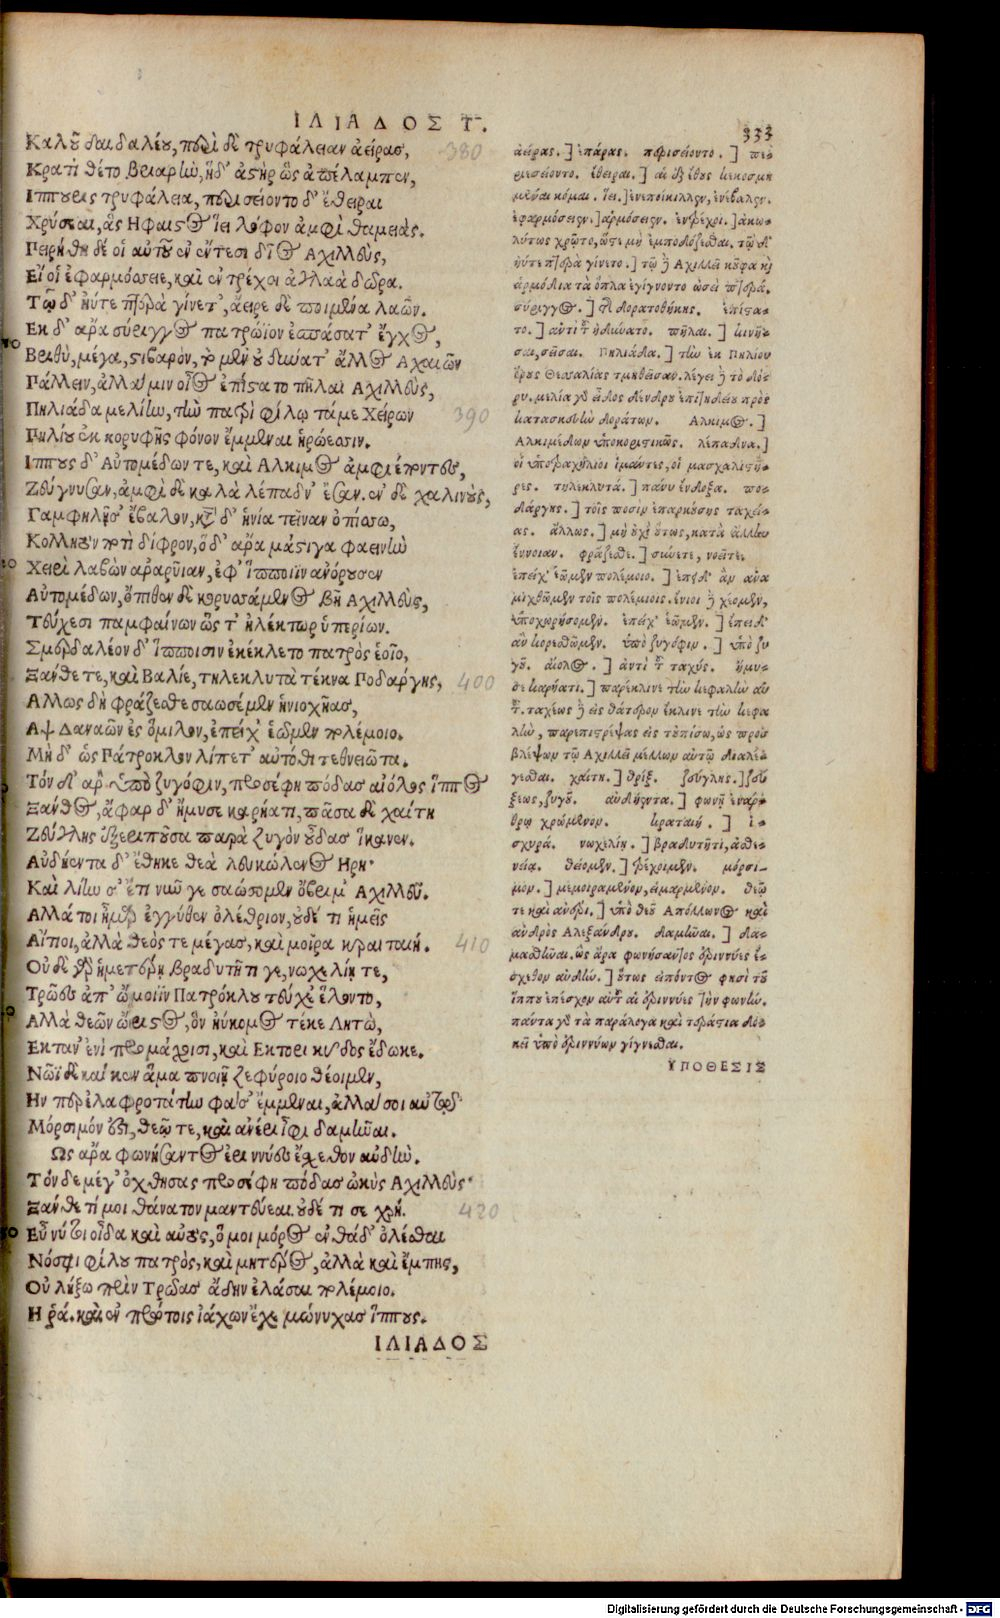 ΙΛΙΑΔΟΣ Τ.
333
Καλοῦ δαιδαλέου, περὶ δὲ τρυφάλειαν ἀείρας,
380
Κρατὶ θέτο βριαρὴν, ἡ δ' ἀστὴρ ὣς ἀπέλαμπεν,
Ιππουρις τρυφάλεια, περισείοντο δ' ἔθειραι
Χρύσεαι, ἃς Ηφαιστος ἵει λόφον ἀμφὶ θαμειάς.
Πειρήθη δέ οἱ αὐτοῦ ἐν ἔντεσι δῖος Αχιλλεὺς,
Εἴ οἱ ἐφαρμόσειε, καὶ ἐντρέχοι ἀγλαὰ δῶρα.
Τῷ δ' ἠύτε πτερὰ γίνετ', ἄειρε δὲ ποιμένα λαῶν.
Εκ δ' ἄρα σύριγγος πατρώϊον ἐσπάσατ' ἔγχος,
Βριθὺ, μέγα, στιβαρόν, τὸ μὲν οὐ δύνατ' ἄλλος Αχαιῶν
Πάλλειν, ἀλλά μιν οἶος ἐπίστατο πῆλαι Αχιλλεὺς,
Πηλιάδα μελίην, τὴν πατρὶ φίλῳ τάμε Χείρων
390
Πηλίου ἐκ κορυφῆς φόνον ἔμμεναι ἡρώεσσιν.
Ιππους δ' Αὐτομέδων τε, καὶ Αλκιμος ἀμφιέποντες,
Ζεύγνυσαν, ἀμφὶ δὲ καλὰ λέπαδν' ἕσαν. ἐν δὲ χαλινοὺς,
Γαμφηλῇς ἔβαλον, κατὰ δ' ἡνία τεῖναν ὀπίσσω,
Κολλητὸν ποτὶ δίφρον, ὁ δ' ἄρα μάστιγα φαεινὴν
Χειρὶ λαβὼν ἀραρυῖαν, ἐφ' ἵπποιϊν ἀνόρουσεν
Αὐτομέδων, ὄπιθεν δὲ κορυσσάμενος βῆ Αχιλλεὺς,
Τεύχεσι παμφαίνων ὥς τ' ἠλέκτωρ ὑπερίων.
Σμερδαλέον δ' ἵπποισιν ἐκέκλετο πατρὸς ἑοῖο,
Ξάνθε τε, καὶ Βαλίε, τηλεκλυτὰ τέκνα Ποδάργης,
400
Αλλως δὴ φράζεσθε σαωσέμεν ἡνιοχῆας,
Αψ Δαναῶν ἐς ὅμιλον, ἐπείχ' ἑῶμεν πολέμοιο.
Μὴ δ' ὡς Πάτροκλον λίπετ' αὐτόθι τεθνειῶτα.
Τόν δ' ἄρ' ὑπὸ ζυγόφιν, προσέφη πόδας αἰόλος ἵππος
Ξάνθος, ἄφαρ δ' ἤμυσε καρήατι, πᾶσα δὲ χαίτη
Ζεύγλης ἐξεριποῦσα παρὰ ζυγὸν οὖδας ἵκανεν.
Αὐδήεντα δ' ἔθηκε θεὰ λευκώλενος Ηρη·
Καὶ λίην σ' ἔτι νῦν γε σαώσομεν ὄβριμ' Αχιλλεῦ.
Αλλά τοι ἦμαρ ἐγγύθεν ὀλέθριον, οὐδέ τι ἡμεῖς
Αἴτιοι, ἀλλὰ θεός τε μέγας, καὶ μοῖρα κραταιή.
410
Οὐδὲ γὰρ ἡμετέρῃ βραδυτῆτί γε, νωχελίῃ τε,
Τρῶες ἀπ' ὤμοιϊν Πατρόκλου τεύχε' ἕλοντο,
Αλλὰ θεῶν ὤριστος, ὃν ἠύκομος τέκε Λητὼ,
Εκταν' ἐνὶ προμάχοισι, καὶ Εκτορι κῦδος ἔδωκε.
Νῶϊ δὲ καί κεν ἅμα πνοιῇ ζεφύροιο θέοιμεν,
Ην περ ἐλαφροτάτην φάσ' ἔμμεναι, ἀλλὰ σοι αὐτῷ
Μόρσιμόν ἐστι, θεῷ τε, καὶ ἀνέρι ἶφι δαμῆναι.
Ως ἄρα φωνήσαντος ἐριννύες ἔσχεθον αὐδήν.
Τόνδε μέγ' ὀχθήσας προσέφη πόδας ὠκὺς Αχιλλεὺς·
Ξάνθε τί μοι θάνατον μαντεύεαι. οὐδέ τί σε χρή.
420
Εὖ νύ τοι οἶδα καὶ αὐτὸς, ὅ μοι μόρος ἐνθάδ' ὀλέσθαι
Νόσφι φίλου πατρὸς, καὶ μητέρος, ἀλλὰ καὶ ἔμπης,
Οὐ λήξω πρὶν Τρῶας ἅδην ἐλάσαι πολέμοιο.
Η ῥά. καὶ ἐν πρώτοις ἰάχων ἔχε μώνυχας ἵππους.
ΙΛΙΑΔΟΣ
ἀείρας.] ἐπάρας. περισείοντο.] περι
εσείοντο. ἔθειραι.] αἱ ἐξ ἔθους κεκοσμη
μέναι κόμαι. ἵει.] ἐνεποίκιλλεν, ἐνέβαλεν.
ἐφαρμόσειεν.] ἁρμόσειεν. ἐντρέχοι.] ἀκω-
λύτως χρῷτο, ὥστε μὴ ἐμποδίζεσθαι. τῷ δ'
ἠύτε πτερὰ γίνετο.] τῷ δὲ Αχιλλεῖ κοῦφα καὶ
ἁρμόδια τὰ ὅπλα ἐγίγνοντο ὡσεὶ πτερά.
σύριγγος.] τῆς δορατοθήκης. ἐπίστα-
το.] ἀντὶ τοῦ ἠδύνατο. πῆλαι.] κινῆ-
σαι, σεῖσαι. Πηλιάδα.] τὴν ἐκ Πηλίου
ὄρους Θεσσαλίας τμηθεῖσαν. λέγει δὲ τὸ δό-
ρυ. μελία γὰρ εἶδος δένδρου ἐπιτηδείου πρὸς
κατασκευὴν δοράτων. Αλκιμος.]
Αλκιμέδων ὑποκοριστικῶς. λέπαδνα.]
οἱ ὑποτραχήλιοι ἱμάντες, οἱ μασχαλιστῆ-
ρες. τηλεκλυτά.] πάνυ ἔνδοξα. πο-
δάργης.] τοῖς ποσὶν ἐπαρκούσης ταχεί-
ας. ἄλλως.] μὴ οὐχὶ οὕτως, κατὰ ἄλλην
ἔννοιαν. φράζεσθε.] σκοπεῖτε, νοεῖτε.
ἐπείχ' ἑῶμεν πολέμοιο.] ἐπειδ' ἂν ἀνα
μιχθῶμεν τοῖς πολέμοις. ἔνιοι δὲ χέομεν,
ὑποχωρήσομεν. ἐπείχ' ἑῶμεν.] ἐπειδ'
ἂν κορεσθῶμεν. ὑπὸ ζυγόφιν.] ὑπὸ ζυ
γοῦ. αἰόλος.] ἀντὶ τοῦ ταχύς. ἤμυ-
σε καρήατι.] παρέκλινε τὴν κεφαλὴν αὐ
τοῦ. ταχέως δὲ εἰς θάτερον ἔκλινε τὴν κεφα
λὴν, παρεπιτρέψας εἰς τοὐπίσω, ὡς προσ
βλέψων τῷ Αχιλλεῖ μέλλων αὐτῷ διαλέ-
γεσθαι. χαίτη.] θρίξ. ζεύγλης.] ζεύ
ξεως, ζυγοῦ. αὐδήεντα.] φωνῇ ἐνάρ-
θρῳ χρώμενον. κραταιή.] ἰ-
σχυρά. νωχελίῃ.] βραδυτῆτι, ἀσθε-
νείᾳ. θέοιμεν.] τρέχοιμεν. μόρσι-
μον.] μεμοιραμένον, εἱμαρμένον. θεῷ
τε καὶ ἀνδρί.] ὑπὸ θεοῦ Απόλλωνος καὶ
ἀνδρὸς Αλεξάνδρου. δαμῆναι.] δα-
μασθῆναι. ὣς ἄρα φωνήσαντος ἐριννύες ἔ-
σχεθον αὐδήν.] οὕτως εἰπόντος φησὶ τοῦ
ἵππου ἐπέσχον αὐτοῦ αἱ ἐριννύες τὴν φωνήν.
πάντα γὰρ τὰ παράλογα καὶ τεράστια δο-
κεῖ ὑπὸ ἐριννύων γίγνεσθαι.
ΥΠΟΘΕΣΙΣ
Digitalisierung gefördert durch die Deutsche Forschungsgemeinschaft - DFG